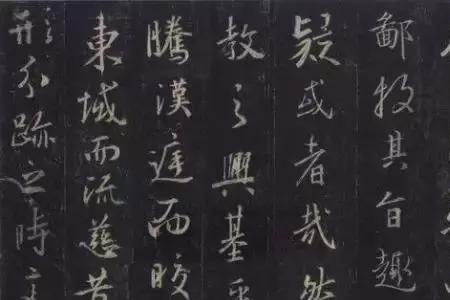 鄙投其旨趣
疑或者哉然
教之興基乎
騰漢庭而皎
東域而流慈昔
形分跡之時